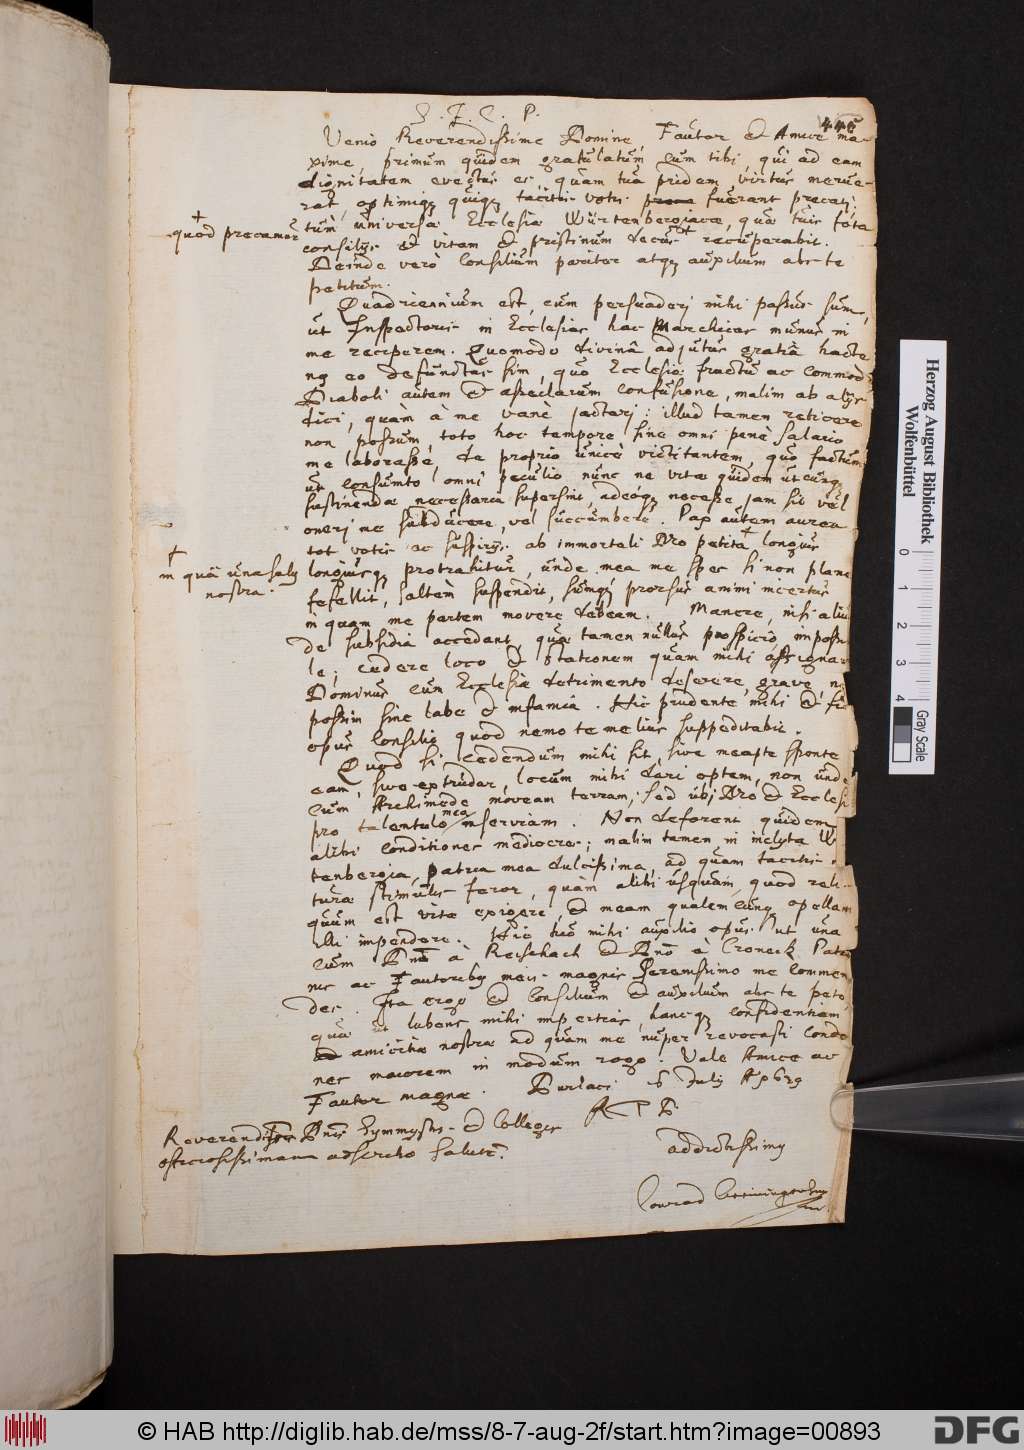 S. J. C. P.
446
Venio Reverendissime Domine, Fautor et Amice ma-
xime, primum quidem gratulatum cum tibi, qui ad eam
dignitatem evectus es, quam tua pridem virtus merue-
rat, optimiq; quiq; tacitis votis fuerant precati;
tum universæ Ecclesiæ Würtenbergicæ, quæ tuis fota
+
quod precamur
consilijs et vitam et pristinum decus + recuperabit.
Deinde verò consilium pariter atq; auxilium abs te
petitum.
Quadriennium est, cum persuaderj mihi passus sum,
ut Inspectoris in Ecclesias hac Marchicas munus in
me reciperem. Quomodo divinâ adjutus gratiâ hacte
nq eo defunctus sim, quo Ecclesiæ fructu ac commodo
Diaboli autem et asseclarum confusione, malim ab alijs
dici, quàm à me vanè jactarj: illud tamen reticere
non possum, toto hoc tempore sine omni penè salario
me laborasse, de proprio unicè victitantem, quo factum
ut consumto omni peculio nunc ne vitæ quidem utcunq;
sustinendæ necessaria supersint, adeoq; necesse jam sit vel
onerj me subducere, vel succumbere. Pax autem aurea
tot votis ac suspirijs ab immortali Deo petita + longius
+
in quâ una salus
nostra.
longiusq; protrahitur, unde mea me spes si non plane
fefellit, saltèm suspendit, sumq; prorsus animi incertus
in quam me partem movere debeam. Manere, nisi aliun
de subsidia accedant, quæ tamen nullus prospicio, impossi
le; cedere loco et stationem quam mihi assignav
Dominus cum Ecclesiæ detrimento deserere, grave, ni
possim sine labe et infamiâ. Hic prudente mihi et
opus consilio quod nemo te melius suppeditabit.
Quod si cedendum mihi sit, sive meapte sponte
eam, sive extrudar, locum mihi dari optem, non unde
cum Archimede moveam terram, sed ubj Deo et Ecclesi
pro talentulo meo inserviam. Non deforent quidem
alibi conditiones mediocres; malim tamen in inclyta W
tenbergia, patria mea dulcissima, ad quam tacitis
turæ stimulis feror, quàm alibi usquam, quod reli-
quum est vitæ exigere, et meam qualemcunq; opellam
illi impendere. Hîc tuo mihi auxilio opus, ut una
cum Dno à Reischach et Dno à Croneck Patro
nis ac Fautoribq meis magnis Serenissimo me commen
des. Ita ergo et consilium et auxilium abs te peto,
quæ ut lubens mihi impertias, hancq; confidentiam
amicitiæ nostræ ad quam me nuper revocasti condo
nes maiorem in modum rogo. Vale Amice ac
Fautor magne. Durlaci 6 Julij Aº 639
R T D.
Reverendiss Dnis Symmystis et Collegis
officiosissimam adscribo salutē.
addictissimq
Conrad